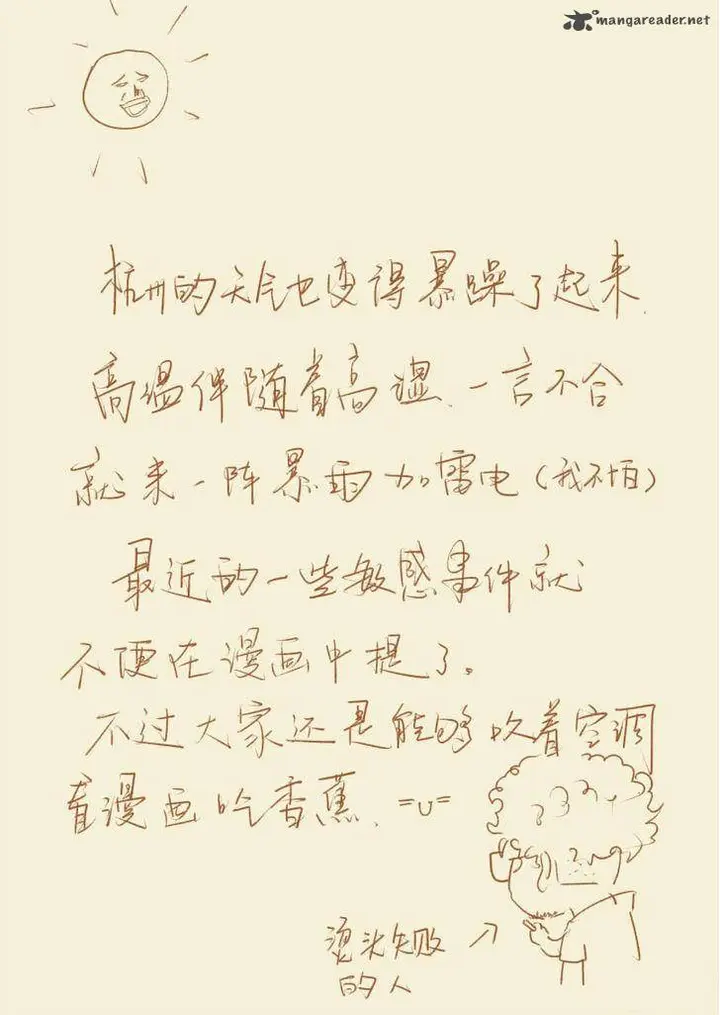 mangareader.net
杭州的天气也变得暴躁了起来.
高温伴随着高湿.一言不合
就来一阵暴雨加雷电(我不怕)
最近的一些敏感事件就
不便在漫画中提了。
不过大家还是能够吹着空调
看漫画吃香蕉. =u=
烫头失败
的人